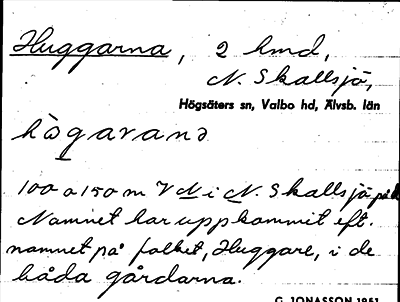 Huggarna, 2 hmd,
N. Skallsjö,
Högsäters sn, Valbo hd, Älvsb. län
hògarana
100 a 150 m V N i N. Skallsjö på
Namnet har uppkommit eft.
namnet på folket, Huggare, i de
båda gårdarna.
G. JONASSON 1951